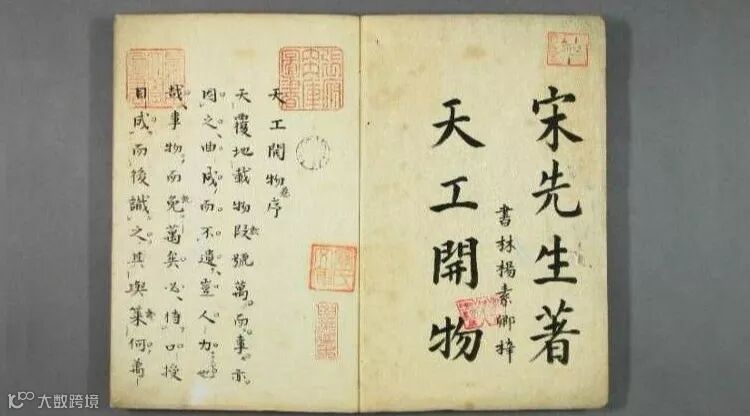 宋先生著
天工開物
書林楊素卿梓
天工開物卷序
天覆地載物段號萬而事亦
因之曲成而不遺豈人力也
哉事物而免萬矣必待口授
目成而後識之其與葉何萬
大数跨境